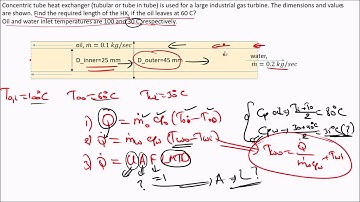 Concentric tube heat exchanger (tubular or tube in tube) is used for a large industrial gas turbine. The dimensions and values
are shown. Find the required length of the HX, if the oil leaves at 60 C?
Oil and water inlet temperatures are 100 and 30 C respectively.
oil, ṁ = 0.1 kg/sec
D_inner=25 mm
D_outer=45 mm
water,
ṁ = 0.2 kg/sec
Toi=100°C Too=60°C Twi=30°C
1) Q̇ = ṁo cpo (Toi-Too)
2) Q̇ = ṁw cpw (Two-Twi)
3) Q̇ = U A F LMTD
=1
? → A → L?
Cp oil → = 80°C
Cpw → = 35°C (?)
Two = Q̇/ṁw cpw + Twi